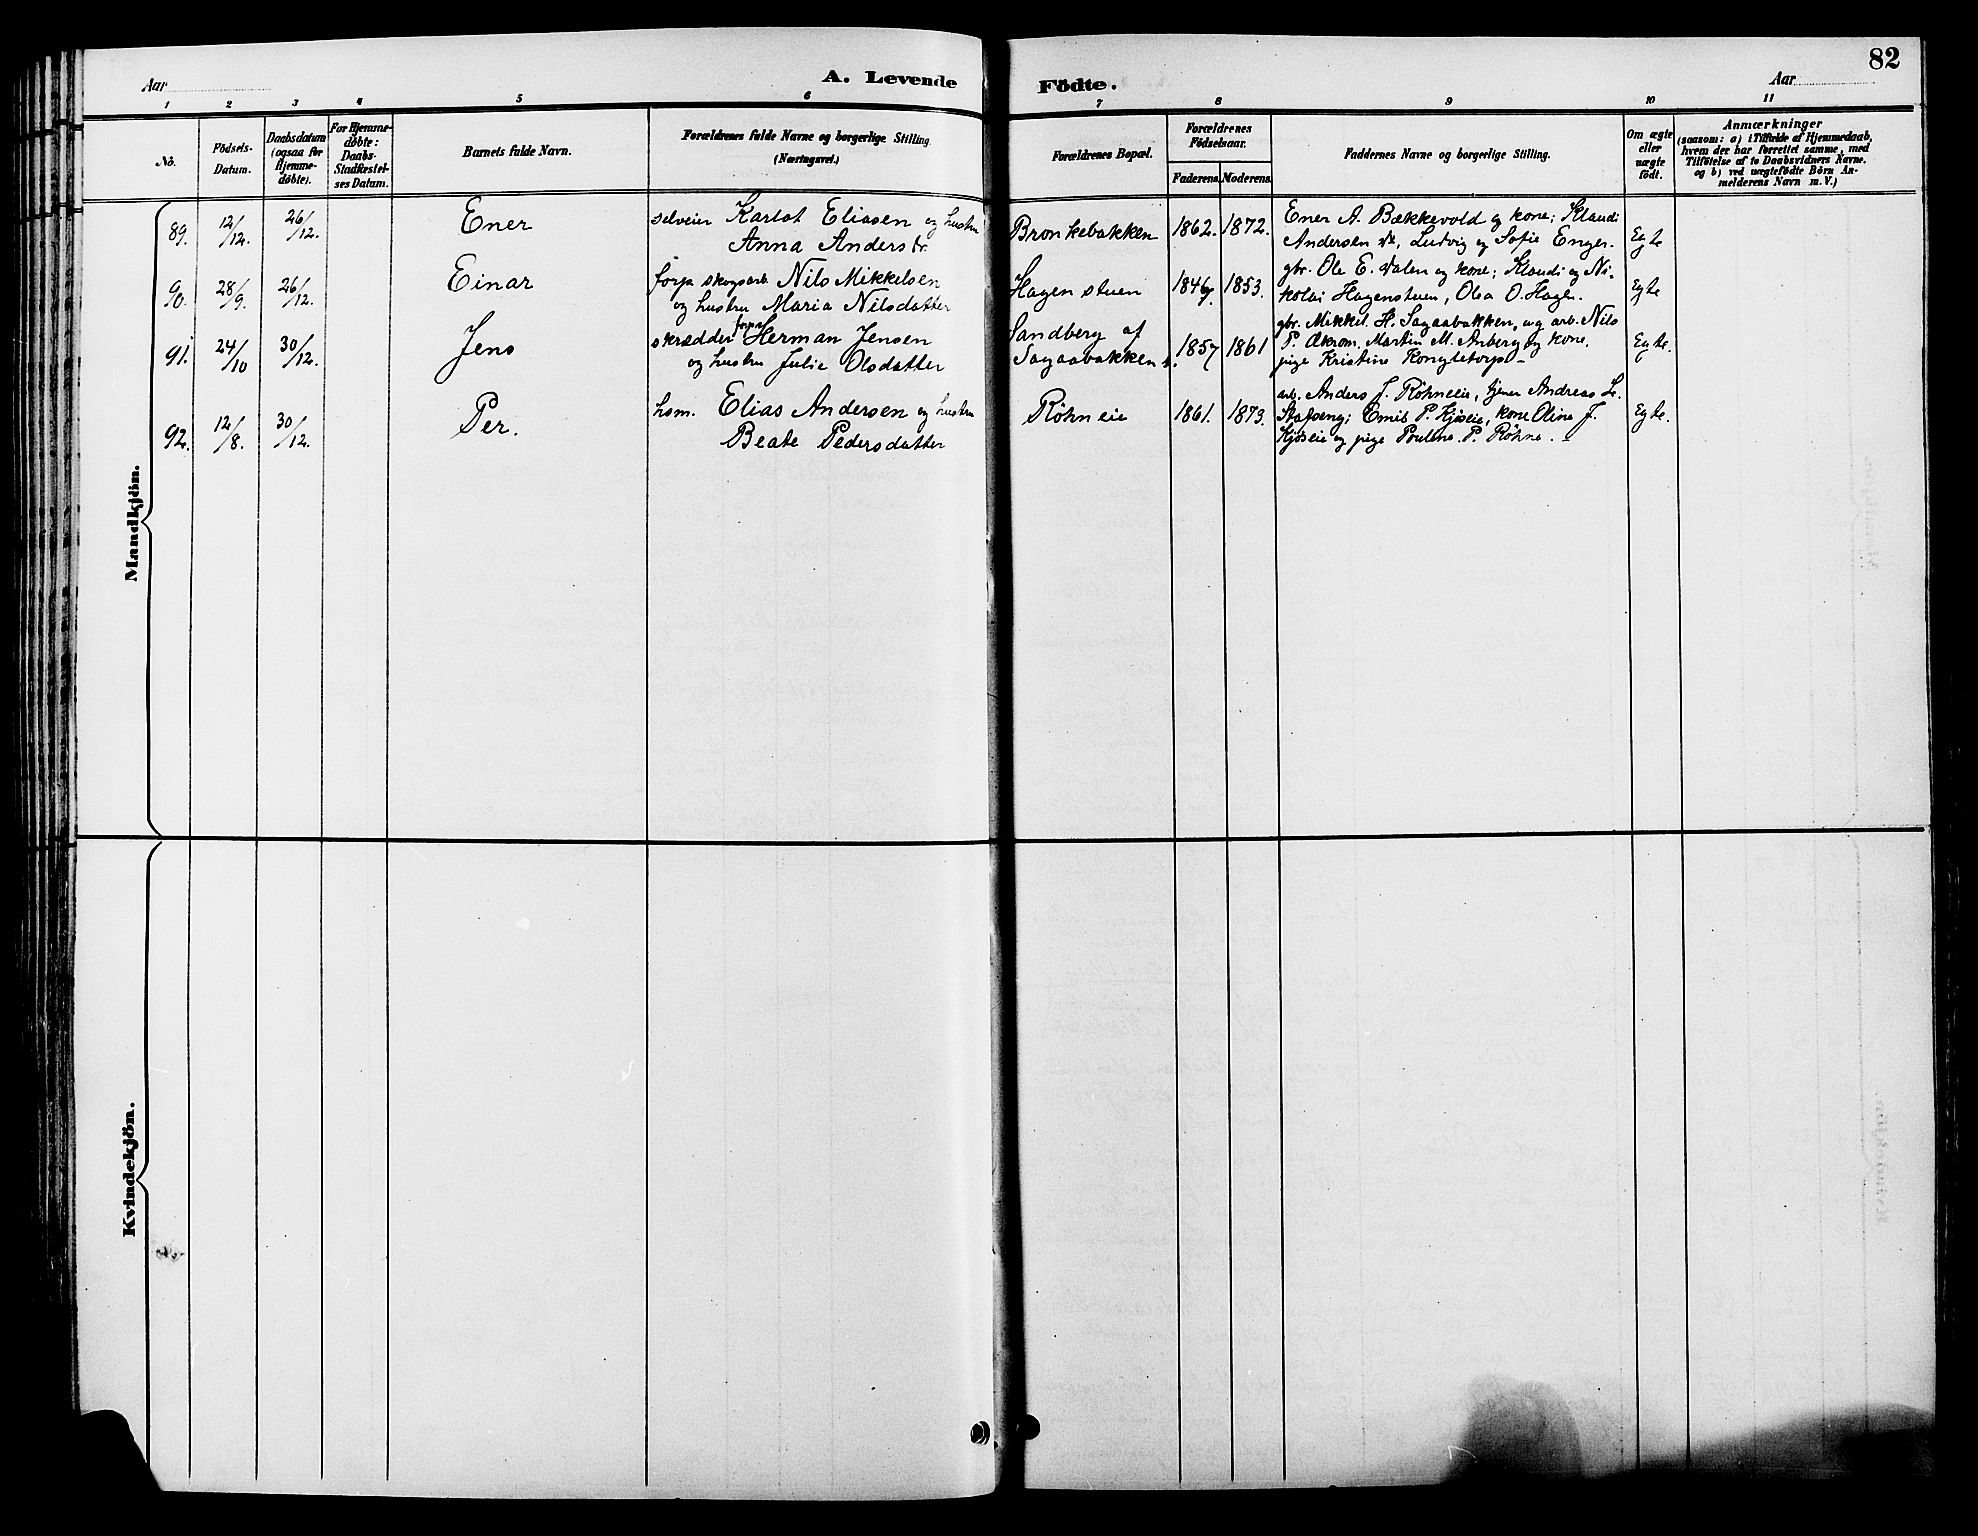 82
Aar
A. Levende
Födte.
Aar
1 2 3 4 5 6 7 8 9 10 11
Nô.
Födsels-
Datum.
Daabsdatum
(ogsaa for
Hjemme-
döbte).
For Hjemme-
döbte:
Daabs-
Stadfestel-
ses Datum.
Barnets fulde Navn.
Forældrenes fulde Navne og borgerlige Stilling.
(Næringsvei.)
Forældrenes Bopæl.
Forældrenes
Födselsaar.
Faderens. Moderens.
Faddernes Navne og borgerlige Stilling.
Om ægte
eller
uægte
födt.
Anmærkninger
(saasom: a) i Tilfælde af Hjemmedaab,
hvem der har forrettet samme, med
Tilföielse af to Daabsvidners Navne.
og b) ved uægtefödte Börn An-
melderens Navn m. V.)
Mandkjön.
89. 12/12. 26/12. Ener
selveier Karlot Eliasen og hustru
Anna Andersdr.
Bronkebakken 1862. 1872.
Ener A. Bækkevold og kone; Klaudi
Andersen, Ludvig og Sofie Enger.
Egte
90. 28/9. 26/12. Einar
forp skogsarb Nils Mikkelsen
og hustru Maria Nilsdatter
Hagenstuen 1847. 1853.
gbr. Ole E. Dalen og kone; Klaudi og Ni-
kolai Hagenstuen, Olea O. Hagen.
Egte
91. 24/10 30/12. Jens
skrædder forpa Herman Jensen
og hustru Julie Olsdatter
Sandberg af
Sagaabakken 1857 1861
gbr. Mikkel H. Sagaabakken, ug arb. Nils
P. Martin M. Anberg og kone,
pige Kristine
Egte.
92. 12/8. 30/12. Per.
hsm. Elias Andersen og hustru
Beate Pedersdatter
Röhneie 1861. 1873.
arb. Anders J. Röhneeie, tjener Andreas L.
Emil P. Kjöseie, kone Oline J.
Kjöseie og pige Pouline P. Röhne.
Egte.
Kvindekjön.